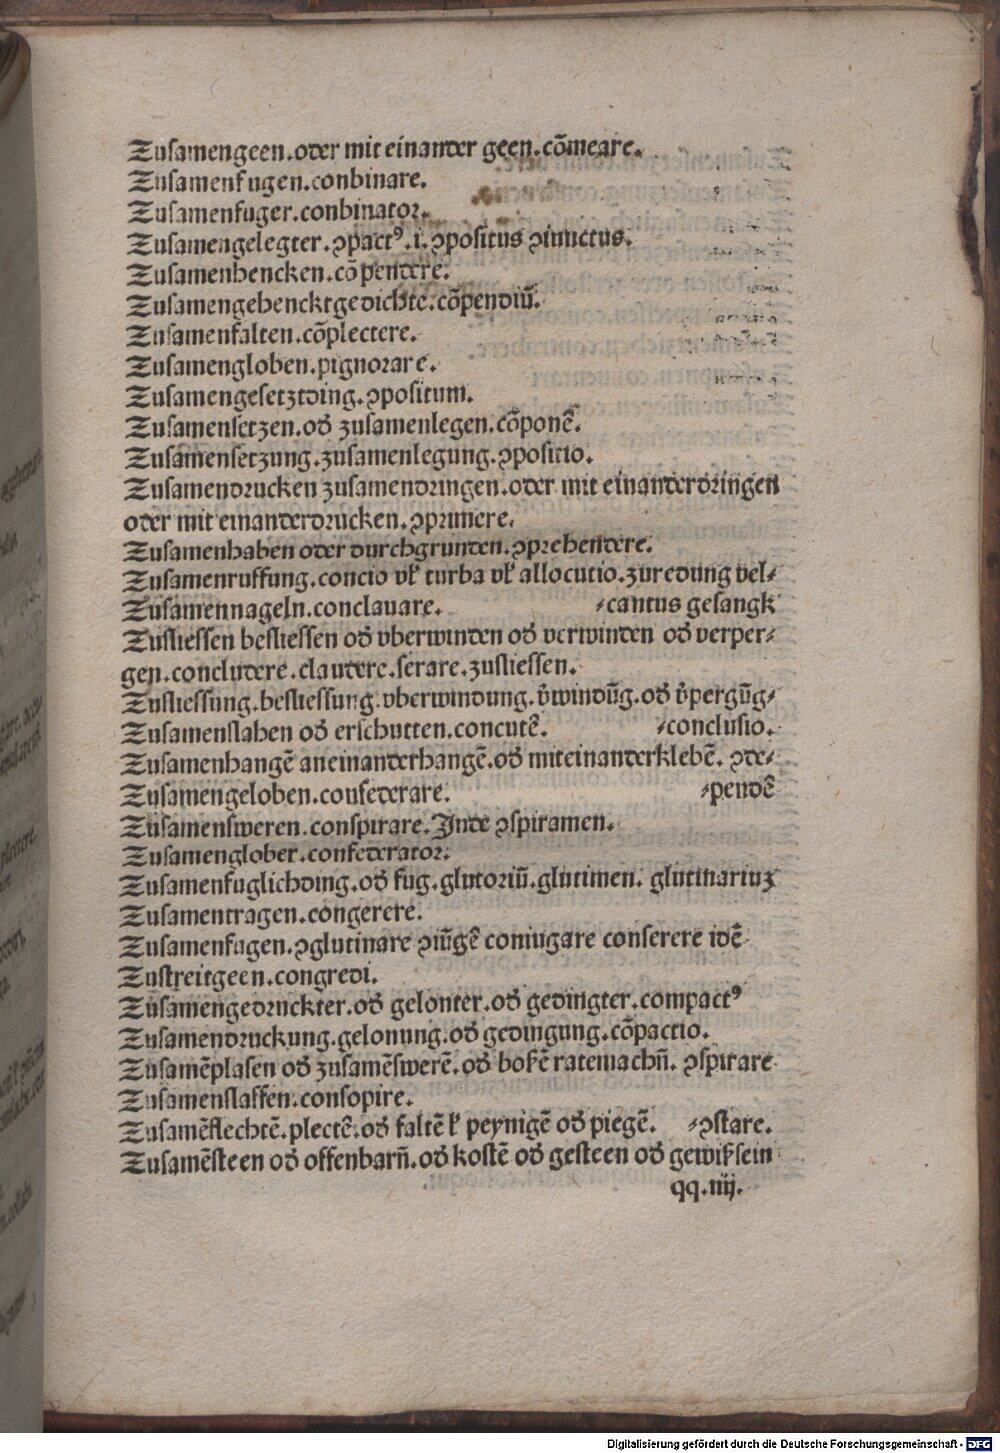 Zusamengeen.oder mit einander geen.cōmeare.
Zusamenfugen.conbinare.
Zusamenfuger.conbinator.
Zusamengelegter.ↄpactꝰ.i.ↄpositus ↄiunctus.
Zusamenhencken.cōpendere.
Zusamengehencktgedichte.cōpendiū.
Zusamenfalten.cōplectere.
Zusamengloben.pignorare.
Zusamengesetztding.ↄpositum.
Zusamensetzen.od̄ zusamenlegen.cōponē.
Zusamensetzung.zusamenlegung.ↄpositio.
Zusamendrucken zusamendringen.oder mit einanderdringen
oder mit einanderdrucken.ↄprimere.
Zusamenhaben oder durchgrunden.ↄprehendere.
Zusamenruffung.concio vl̄ turba vl̄ allocutio.zuredung vel⸗
Zusamennageln.conclauare. ⸗cantus gesangk
Zusliessen besliessen od̄ vberwinden od̄ verwinden od̄ verper⸗
gen.concludere.claudere.serare.zusliessen.
Zusliessung.besliessung.vberwindung.v̄windūg.od̄ v̄pergūg⸗
Zusamenslahen od̄ erschutten.concutē. ⸗conclusio.
Zusamenhangē aneinanderhangē.od̄ miteinanderklebē. ↄde⸗
Zusamengeloben.confederare. ⸗pendē
Zusamensweren.conspirare.Inde ↄspiramen.
Zusamenglober.confederator.
Zusamenfuglichding.od̄ fug.glutoriū.glutimen. glutinariuʒ
Zusamentragen.congerere.
Zusamenfugen.ↄglutinare ↄiūgē coniugare conserere idē
Zustreitgeen.congredi.
Zusamengedruckter.od̄ gelonter.od̄ gedingter.compactꝰ
Zusamendruckung.gelonung.od̄ gedingung.cōpactio.
Zusamēplasen od̄ zusamēswerē.od̄ bosē ratemachn̄. ↄspirare
Zusamenslaffen.consopire.
Zusamēflechtē.plectē.od̄ faltē l̄ peynigē od̄ piegē. ⸗ↄstare.
Zusamēsteen od̄ offenbarn̄.od̄ kostē od̄ gesteen od̄ gewiß sein
qq.iiij.
Digitalisierung gefördert durch die Deutsche Forschungsgemeinschaft - DFG